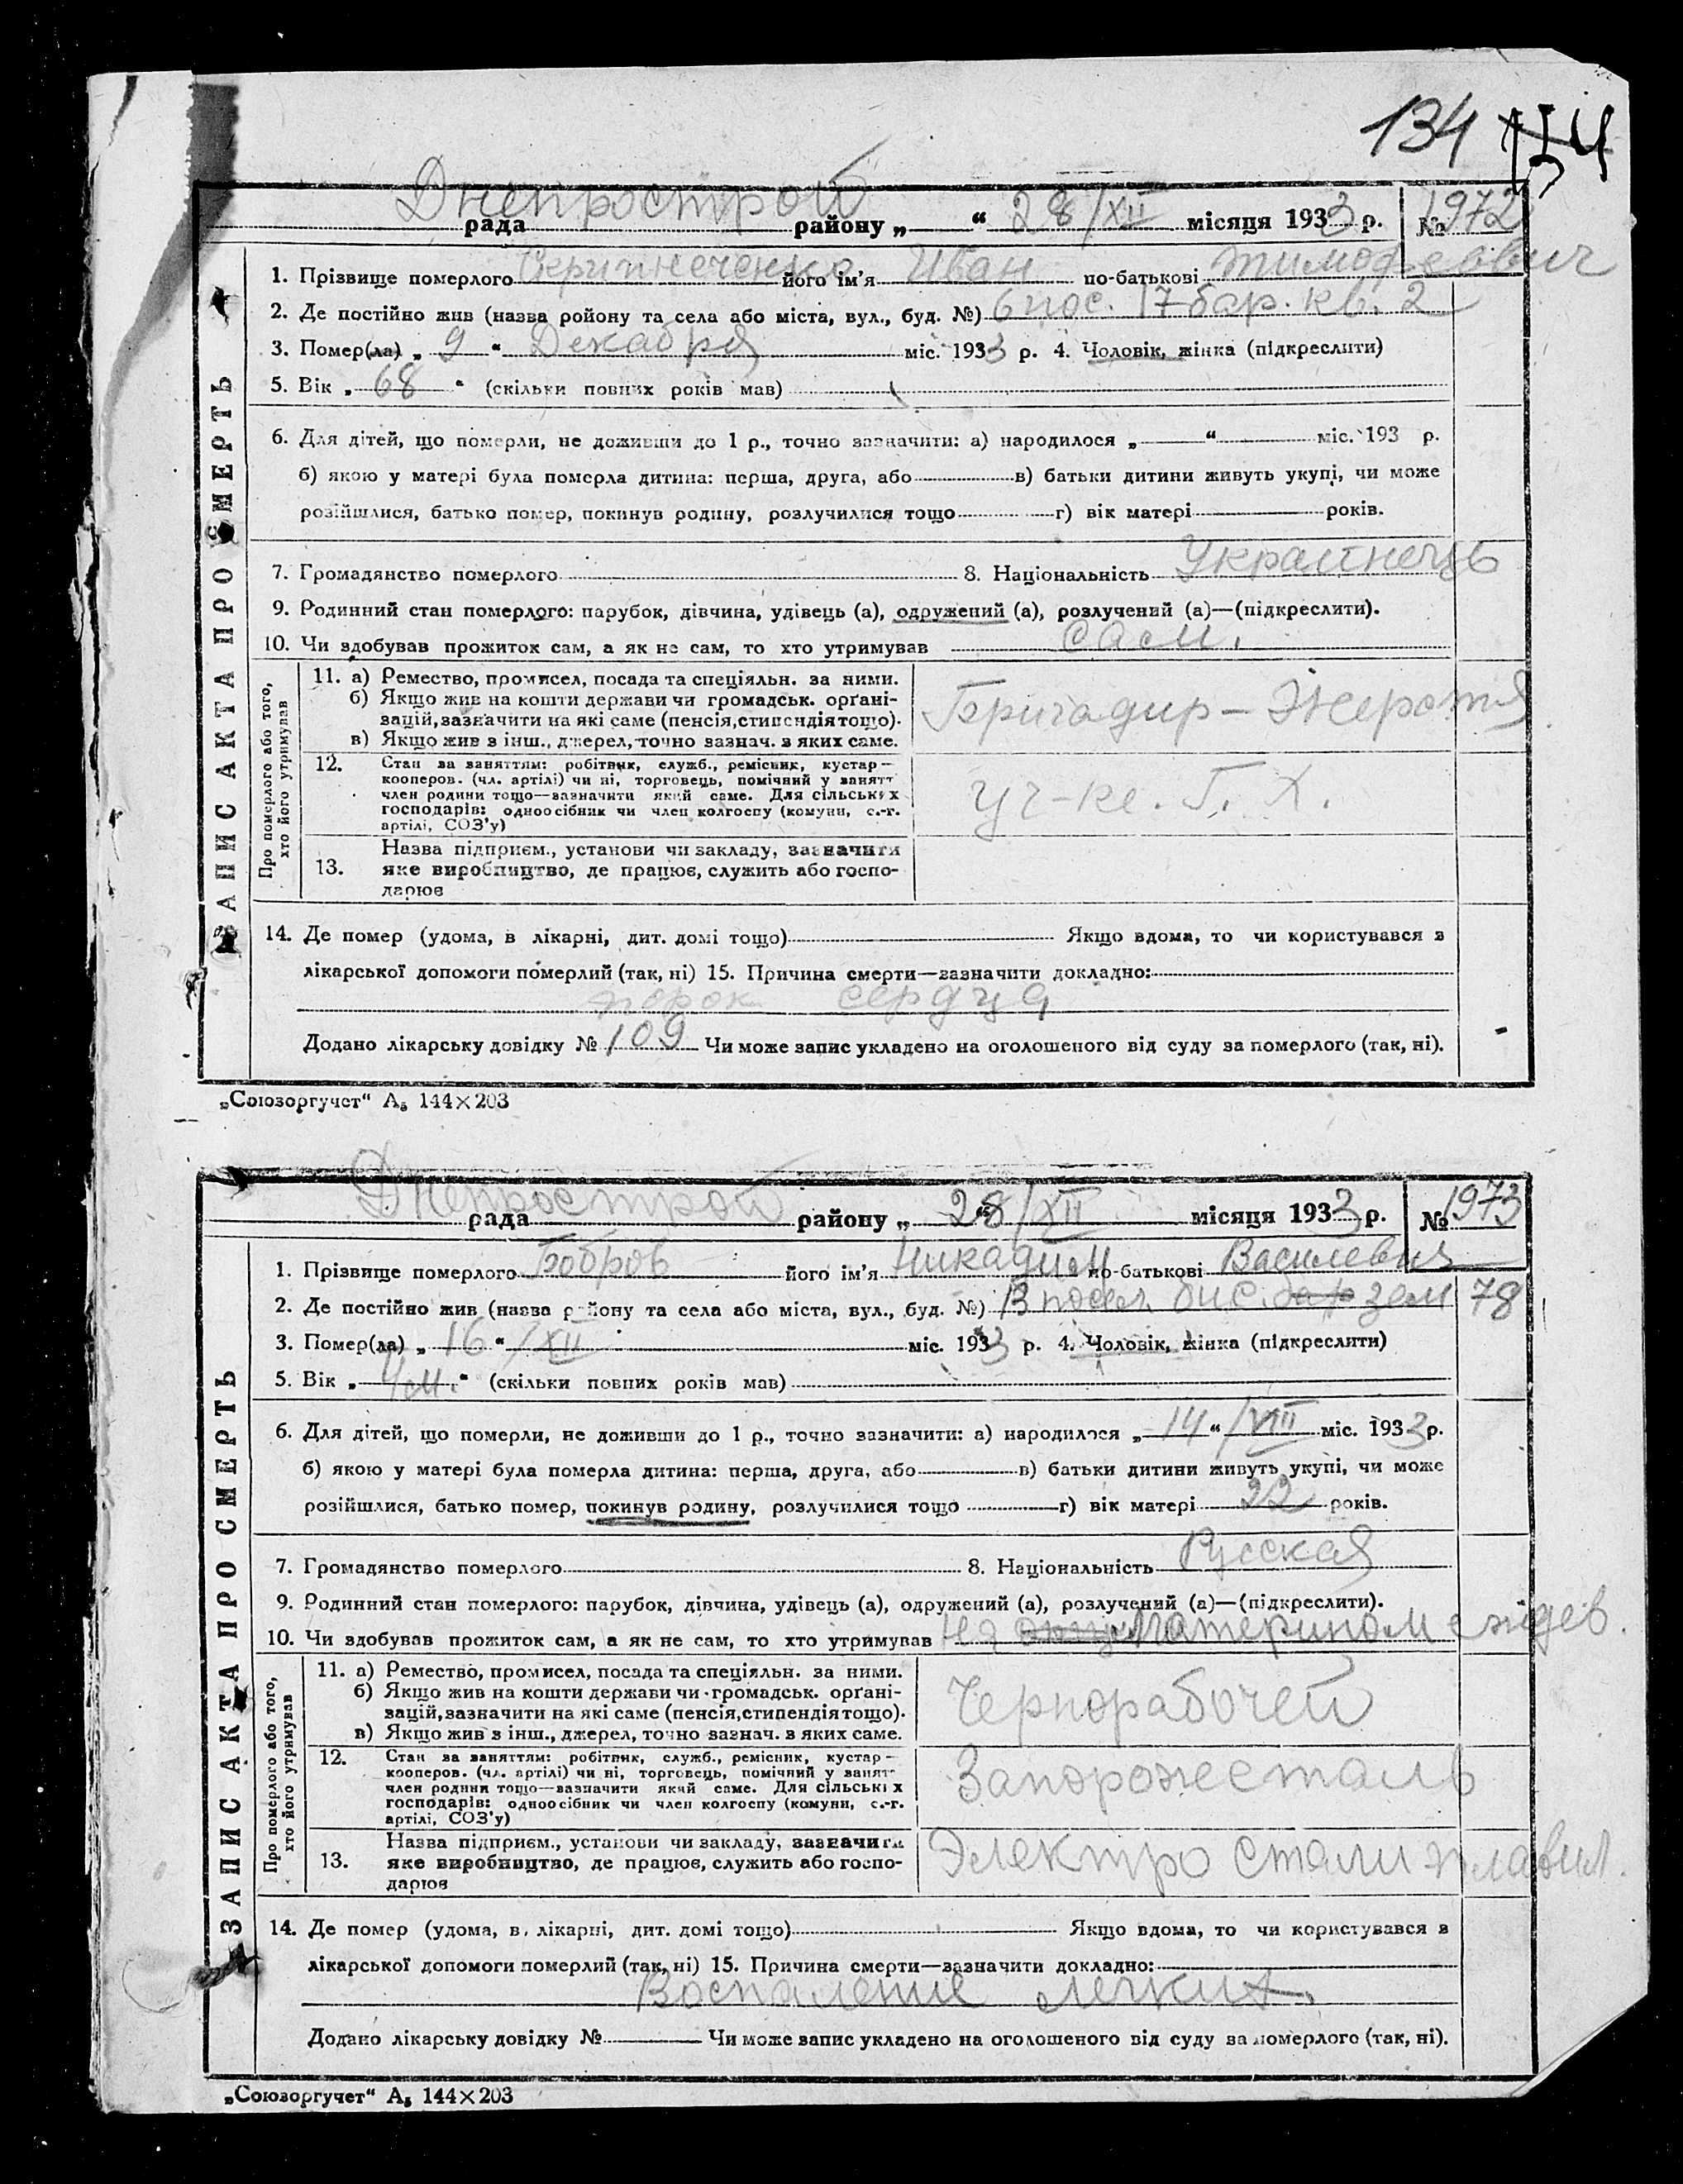 134
Днепрострой
рада районy „ “ 28/XII місяця 1933 р. № 1972
ЗАПИС АКТА ПРО СМЕРТЬ
1. Прізвище померлого його ім'я Иван по-батькові Тимофеевич
2. Де постійно жив (назва ройону та села або міста, вул., буд. №) 6 пос. 17 бар. кв. 2
3. Помер(ла) „ 9 “ Декабря міс. 1933 р. 4. Чоловік, жінка (підкреслити)
5. Вік „ 68 “ (скільки повних років мав)
6. Для дітей, що померли, не доживши до 1 р., точно зазначити: а) народилося „ “ міс. 193 р.
б) якою у матері була померла дитина: перша, друга, або в) батьки дитини живуть укупі, чи може
розійшлися, батько помер, покинув родину, розлучилися тощо г) вік матері років.
7. Громадянство померлого 8. Національність Украинець
9. Родинний стан померлого: парубок, дівчина, удівець (а), одружений (а), розлучений (а)—(підкреслити).
10. Чи здобував прожиток сам, а як не сам, то хто утримував сам.
Про померлого або того, хто його утримував
11. а) Ремество, промисел, посада та спеціяльн. за ними.
б) Якщо жив на кошти держави чи громадськ. орґані-
зацій, зазначити на які саме (пенсія, стипендія тощо).
в) Якщо жив з інш., джерел, точно зазнач. з яких саме.
Бригадир –
12. Стан за заняттям: робітник, служб., ремісник, кустар—
кооперов. (чл. артілі) чи ні, торговець, помічний у занятт
член родини тощо—зазначити який саме. Для сільських
господарів: одноосібник чи член колгоспу (комуни, с.-г.
артілі, СОЗ'у)
уч-к. Г. Х.
Назва підприєм., установи чи закладу, зазначити
13. яке виробництво, де працює, служить або госпо-
дарює
14. Де помер (удома, в лікарні, дит. домі тощо) Якщо вдома, то чи користувався з
лікарської допомоги померлий (так, ні) 15. Причина смерти—зазначити докладно:
порок сердца
Додано лікарську довідку № 109 Чи може запис укладено на оголошеного від суду за померлого (так, ні).
„Союзоргучет“ А₅ 144×203
Днепрострой
рада району „ 28/XII місяця 1933 р. № 1973
ЗАПИС АКТА ПРО СМЕРТЬ
1. Прізвище померлого Бобров його ім'я Никадим по-батькові Василевич
2. Де постійно жив (назва ройону та села або міста, вул., буд. №) зем 78
3. Помер(ла) „ 16 “ /XII міс. 1933 р. 4. Чоловік, жінка (підкреслити)
5. Вік „ 4 м. “ (скільки повних років мав)
6. Для дітей, що померли, не доживши до 1 р., точно зазначити: а) народилося „ 14 “ /VIII міс. 1933 р.
б) якою у матері була померла дитина: перша, друга, або в) батьки дитини живуть укупі, чи може
розійшлися, батько помер, покинув родину, розлучилися тощо г) вік матері 22 років.
7. Громадянство померлого 8. Національність Русская
9. Родинний стан померлого: парубок, дівчина, удівець (а), одружений (а), розлучений (а)—(підкреслити).
10. Чи здобував прожиток сам, а як не сам, то хто утримував На Материном иждев.
Про померлого або того, хто його утримував
11. а) Ремество, промисел, посада та спеціяльн. за ними.
б) Якщо жив на кошти держави чи громадськ. орґані-
зацій, зазначити на які саме (пенсія, стипендія тощо).
в) Якщо жив з інш., джерел, точно зазнач. з яких саме.
Чернорабочей
12. Стан за заняттям: робітник, служб., ремісник, кустар—
кооперов. (чл. артілі) чи ні, торговець, помічний у занятт
член родини тощо—зазначити який саме. Для сільських
господарів: одноосібник чи член колгоспу (комуни, с.-г.
артілі, СОЗ'у)
Запорожесталь
Назва підприєм., установи чи закладу, зазначити
13. яке виробництво, де працює, служить або госпо-
дарює
Электро стали плавил.
14. Де помер (удома, в лікарні, дит. домі тощо) Якщо вдома, то чи користувався з
лікарської допомоги померлий (так, ні) 15. Причина смерти—зазначити докладно:
Воспаление легких.
Додано лікарську довідку № Чи може запис укладено на оголошеного від суду за померлого (так, ні).
„Союзоргучет“ А₅ 144×203